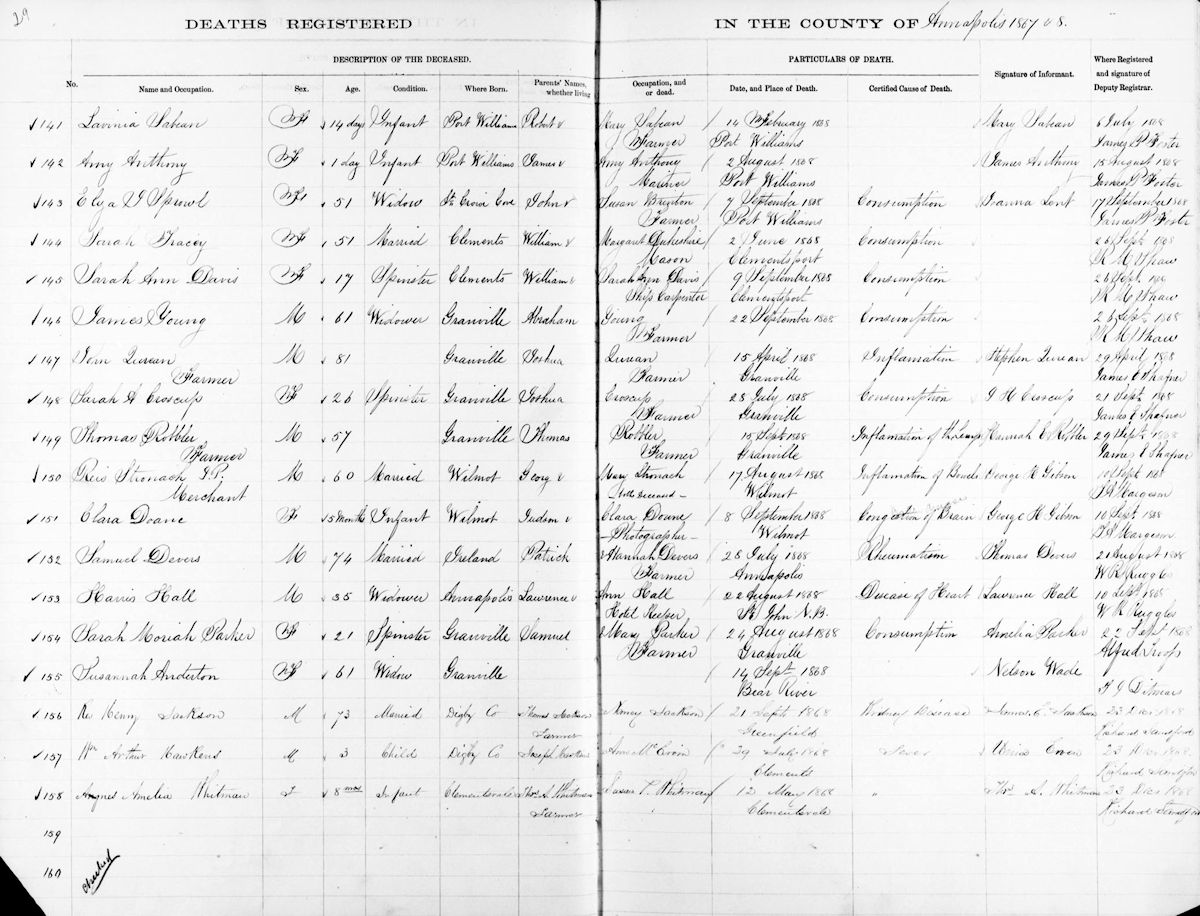 29
DEATHS REGISTERED IN THE COUNTY OF Annapolis 1867 68.
DESCRIPTION OF THE DECEASED. PARTICULARS OF DEATH.
No. Name and Occupation. Sex. Age. Condition. Where Born. Parents' Names, whether living Occupation, and or dead. Date, and Place of Death. Certified Cause of Death. Signature of Informant. Where Registered and signature of Deputy Registrar.
141 Lavinia Sabean F 14 days Infant Port Williams Robert & Mary Sabean 14 February 1868 Mary Sabean 6 July 1868
Farmer Port Williams James P Foster
142 Amy Anthony F 1 day Infant Port Williams James & Amy Anthony 2 August 1868 James Anthony 18 August 1868
Mariner Port Williams James P Foster
143 Eliza J Sprowl F 51 Widow St Croix Cove John & Susan Brenton 7 September 1868 Consumption Joanna Lent 17 September 1868
Farmer Port Williams James P Foster
144 Sarah Tracey F 51 Married Clements William & Margaret Dukeshire 2 June 1868 Consumption 26 Sept 1868
Mason Clementsport R M Shaw
145 Sarah Ann Davis F 17 Spinster Clements William & Sarah Ann Davis 9 September 1868 Consumption 26 Sept
Ship Carpenter Clementsport R M Shaw
146 James Young M 61 Widower Granville Abraham Young 22 September 1868 Consumption 26 Sept 1868
Farmer R M Shaw
147 M 81 Granville Joshua 15 April 1868 Inflamation Stephen 29 April 1868
Farmer Farmer Granville James E Shafner
148 Sarah A Croscup F 26 Spinster Granville Joshua Croscup 28 July 1868 Consumption Croscup 21 Sept 1868
Farmer Granville James E Shafner
149 Thomas Robbler M 57 Granville Thomas Robbler 15 Sept 1868 Inflamation of the Lungs Hannah E Robbler 29 Sept 1868
Farmer Farmer Granville James E Shafner
150 Stronach J.P. M 60 Married Wilmot Georg & Mary Stronach 17 August 1868 Inflamation of George H Gibson 10 Sept 1868
Merchant Both deceased Wilmot Margeson
151 Clara Doane F 5 months Infant Wilmot Judson & Clara Doane 8 September 1868 Congestion of Brain George H Gibson 10 Sept 1868
Photographer Wilmot Margeson
152 Samuel Devers M 74 Married Ireland Patrick & Hannah Devers 28 July 1868 Rheumatism Thomas Devers 21 August 1868
Farmer Annapolis W R Ruggles
153 Harris Hall M 35 Widower Annapolis Lawrence & Ann Hall 22 August 1868 Disease of Heart Lawrence Hall 10 Sept 1868
Hotel Keeper St John N.B. W R Ruggles
154 Sarah Moriah Parker F 21 Spinster Granville Samuel & Mary Parker 24 August 1868 Consumption Amelia Parker 22 Sept 1868
Farmer Granville Alfred Troop
155 Susannah Anderton F 61 Widow Granville 14 Sept 1868 Nelson Wade
Bear River F J Ditmars
156 Henry Jackson M 73 Married Digby Co Thomas Jackson Nancy Jackson 21 Sept 1868 Kidney Disease Jackson 23 Dec 1868
Farmer Greenfield Richard
157 Wm Arthur Hawkens M 3 Child Digby Co Joseph 29 July 1868 Fever 23 1868
Clements Richard
158 Agnes Amelia Whitman F 8 mos Infant Clementsvale Thos. A. Whitman Susan T. Whitman 12 May 1868 " Thos A. Whitman 23 Dec 1868
Farmer Clementsvale Richard
159
160
checked